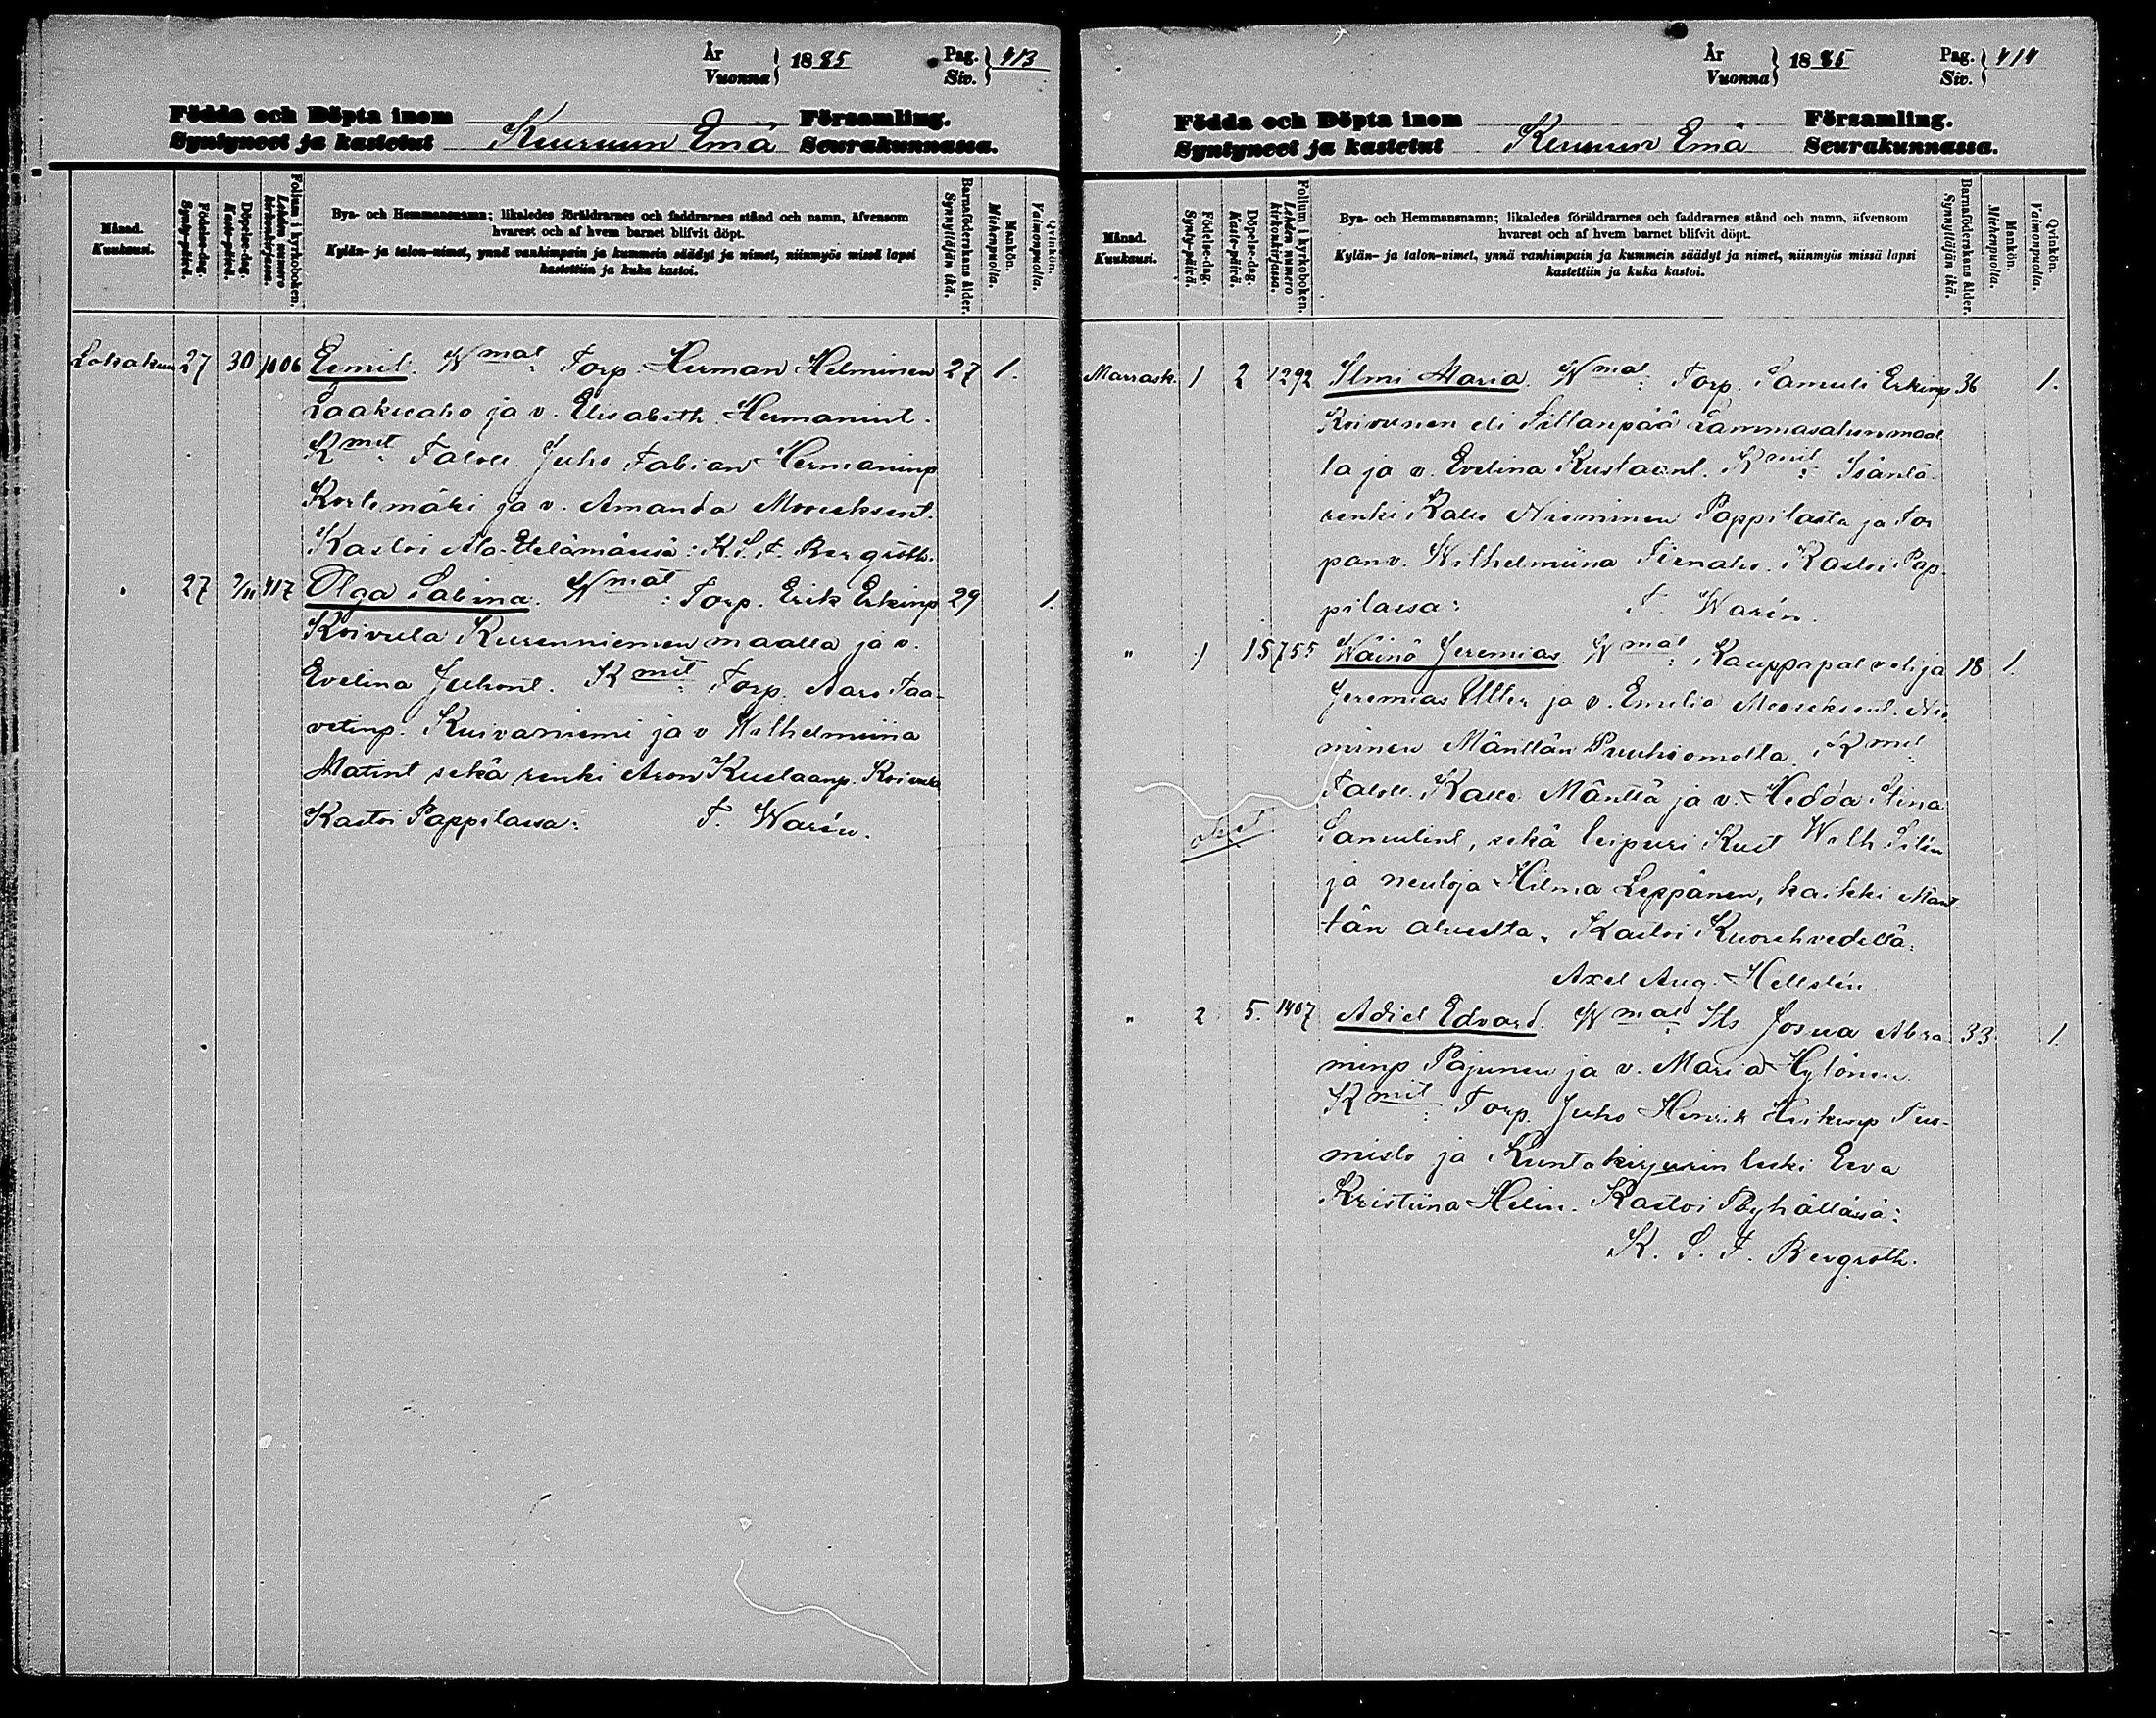 År
Vuonna } 1885 Pag.
Siv. } 413
Födda och Döpta inom Församling.
Syntyneet ja kastetut Keuruun Emä Seurakunnassa.
Månad.
Kuukausi.
Födelse-dag.
Synty-päivä.
Döpelse-dag.
Kaste-päivä.
Folium i kyrkoboken.
Lehden numero
kirkonkirjassa.
Bya- och Hemmansnamn; likaledes föräldrarnes och faddrarnes stånd och namn, äfvensom
hvarest och af hvem barnet blifvit döpt.
Kylän- ja talon-nimet, ynnä vanhimpain ja kummein säädyt ja nimet, niinmyös missä lapsi
kastettiin ja kuka kastoi.
Barnaföderskans ålder.
Synnyttäjän ikä.
Mankön.
Miehenpuolia.
Qvinkön.
Vaimonpuolia.
Lokakuu 27 30 1006 Eemil. Wmat: Torp. Herman Helminen 27 1.
Laakeaho ja v. Elisabeth Hermanint.
Kmit: Taloll. Juho Fabian Hermaninp
Kortemäki ja v. Amanda Mooseksent.
Kastoi Ala-Etelämäessä: K. S. F. Bergroth.
" 27 7/11 417 Olga Sabina. Wmat: Torp. Erik Erkinp 29 1.
Koivula Kurenniemen maalla ja v.
Evelina Juhont. Kmit: Torp. Aaro Taa-
vetinp. Kuivaniemi ja v Wilhelmiina
Matint sekä renki Aron Kustaanp. Koivula
Kastoi Pappilassa: F. Warén.
År
Vuonna } 1885 Pag.
Siv. } 414
Födda och Döpta inom Församling.
Syntyneet ja kastetut Keuruun Emä Seurakunnassa.
Månad.
Kuukausi.
Födelse-dag.
Synty-päivä.
Döpelse-dag.
Kaste-päivä.
Folium i kyrkoboken.
Lehden numero
kirkonkirjassa.
Bya- och Hemmansnamn; likaledes föräldrarnes och faddrarnes stånd och namn, äfvensom
hvarest och af hvem barnet blifvit döpt.
Kylän- ja talon-nimet, ynnä vanhimpain ja kummein säädyt ja nimet, niinmyös missä lapsi
kastettiin ja kuka kastoi.
Barnaföderskans ålder.
Synnyttäjän ikä.
Mankön.
Miehenpuolia.
Qvinkön.
Vaimonpuolia.
Marrask. 1 2 1292 Ilmi Maria. Wmat: Torp. Samuli Erkinp 36 1.
Koivunen eli Sillanpää Lammasahon maal
la ja v. Evelina Kustaant. Kmit: Isäntä-
renki Kalle Nieminen Pappilasta ja Tor
panv. Wilhelmiina Tienaho. Kastoi Pap-
pilassa: F. Warén.
" 1 15 755 Wäinö Jeremias. Wmat: Kauppapalvelija 18 1.
Jeremias Uller ja v. Emelia Mooseksent. Nie
minen Mänttän Puuhiomolta. Kmit:
Taloll. Kalle Mänttä ja v. Hedda Stina
Samulint, sekä leipuri Kust Wilh Silén
ja neuloja Hilma Leppänen, kaikki Mänt-
tän alueelta. Kastoi Kuorehvedellä:
Axel Aug. Hellstén
" 2 5. 1407 Adiel Edvard. Wmat: Its Josua Abra- 33 1.
minp Pajunen ja v. Maria Hylönen
Kmit: Torp. Juho Henrik Heikinp Tuo-
misto ja Kuntakirjurin leski Eeva
Kristiina Helin. Kastoi Pöyhällässä:
K. S. F. Bergroth.